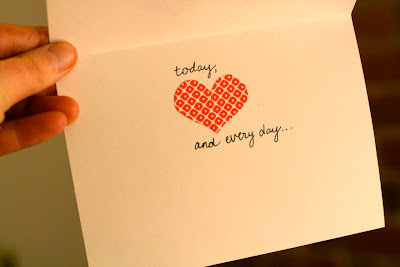 today,
and every day...